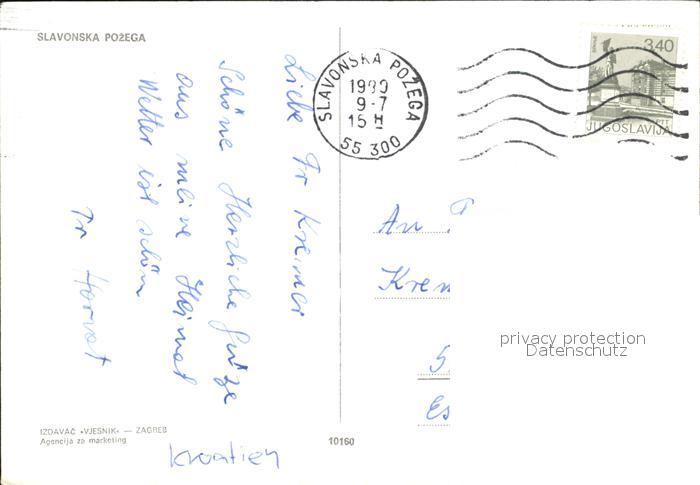 SLAVONSKA POŽEGA
Liebe Fr Kremer
Schöne Herzliche Grüze
aus meine Heimat
Wetter ist schön
Fr Horvat
SLAVONSKA POŽEGA
1989
9-7
15 H
55 300
3,40
PTT
JUGOSLAVIJA
An F
Krem
5
Es
privacy protection
Datenschutz
IZDAVAČ »VJESNIK« — ZAGREB
Agencija za marketing
10160
Kroatien